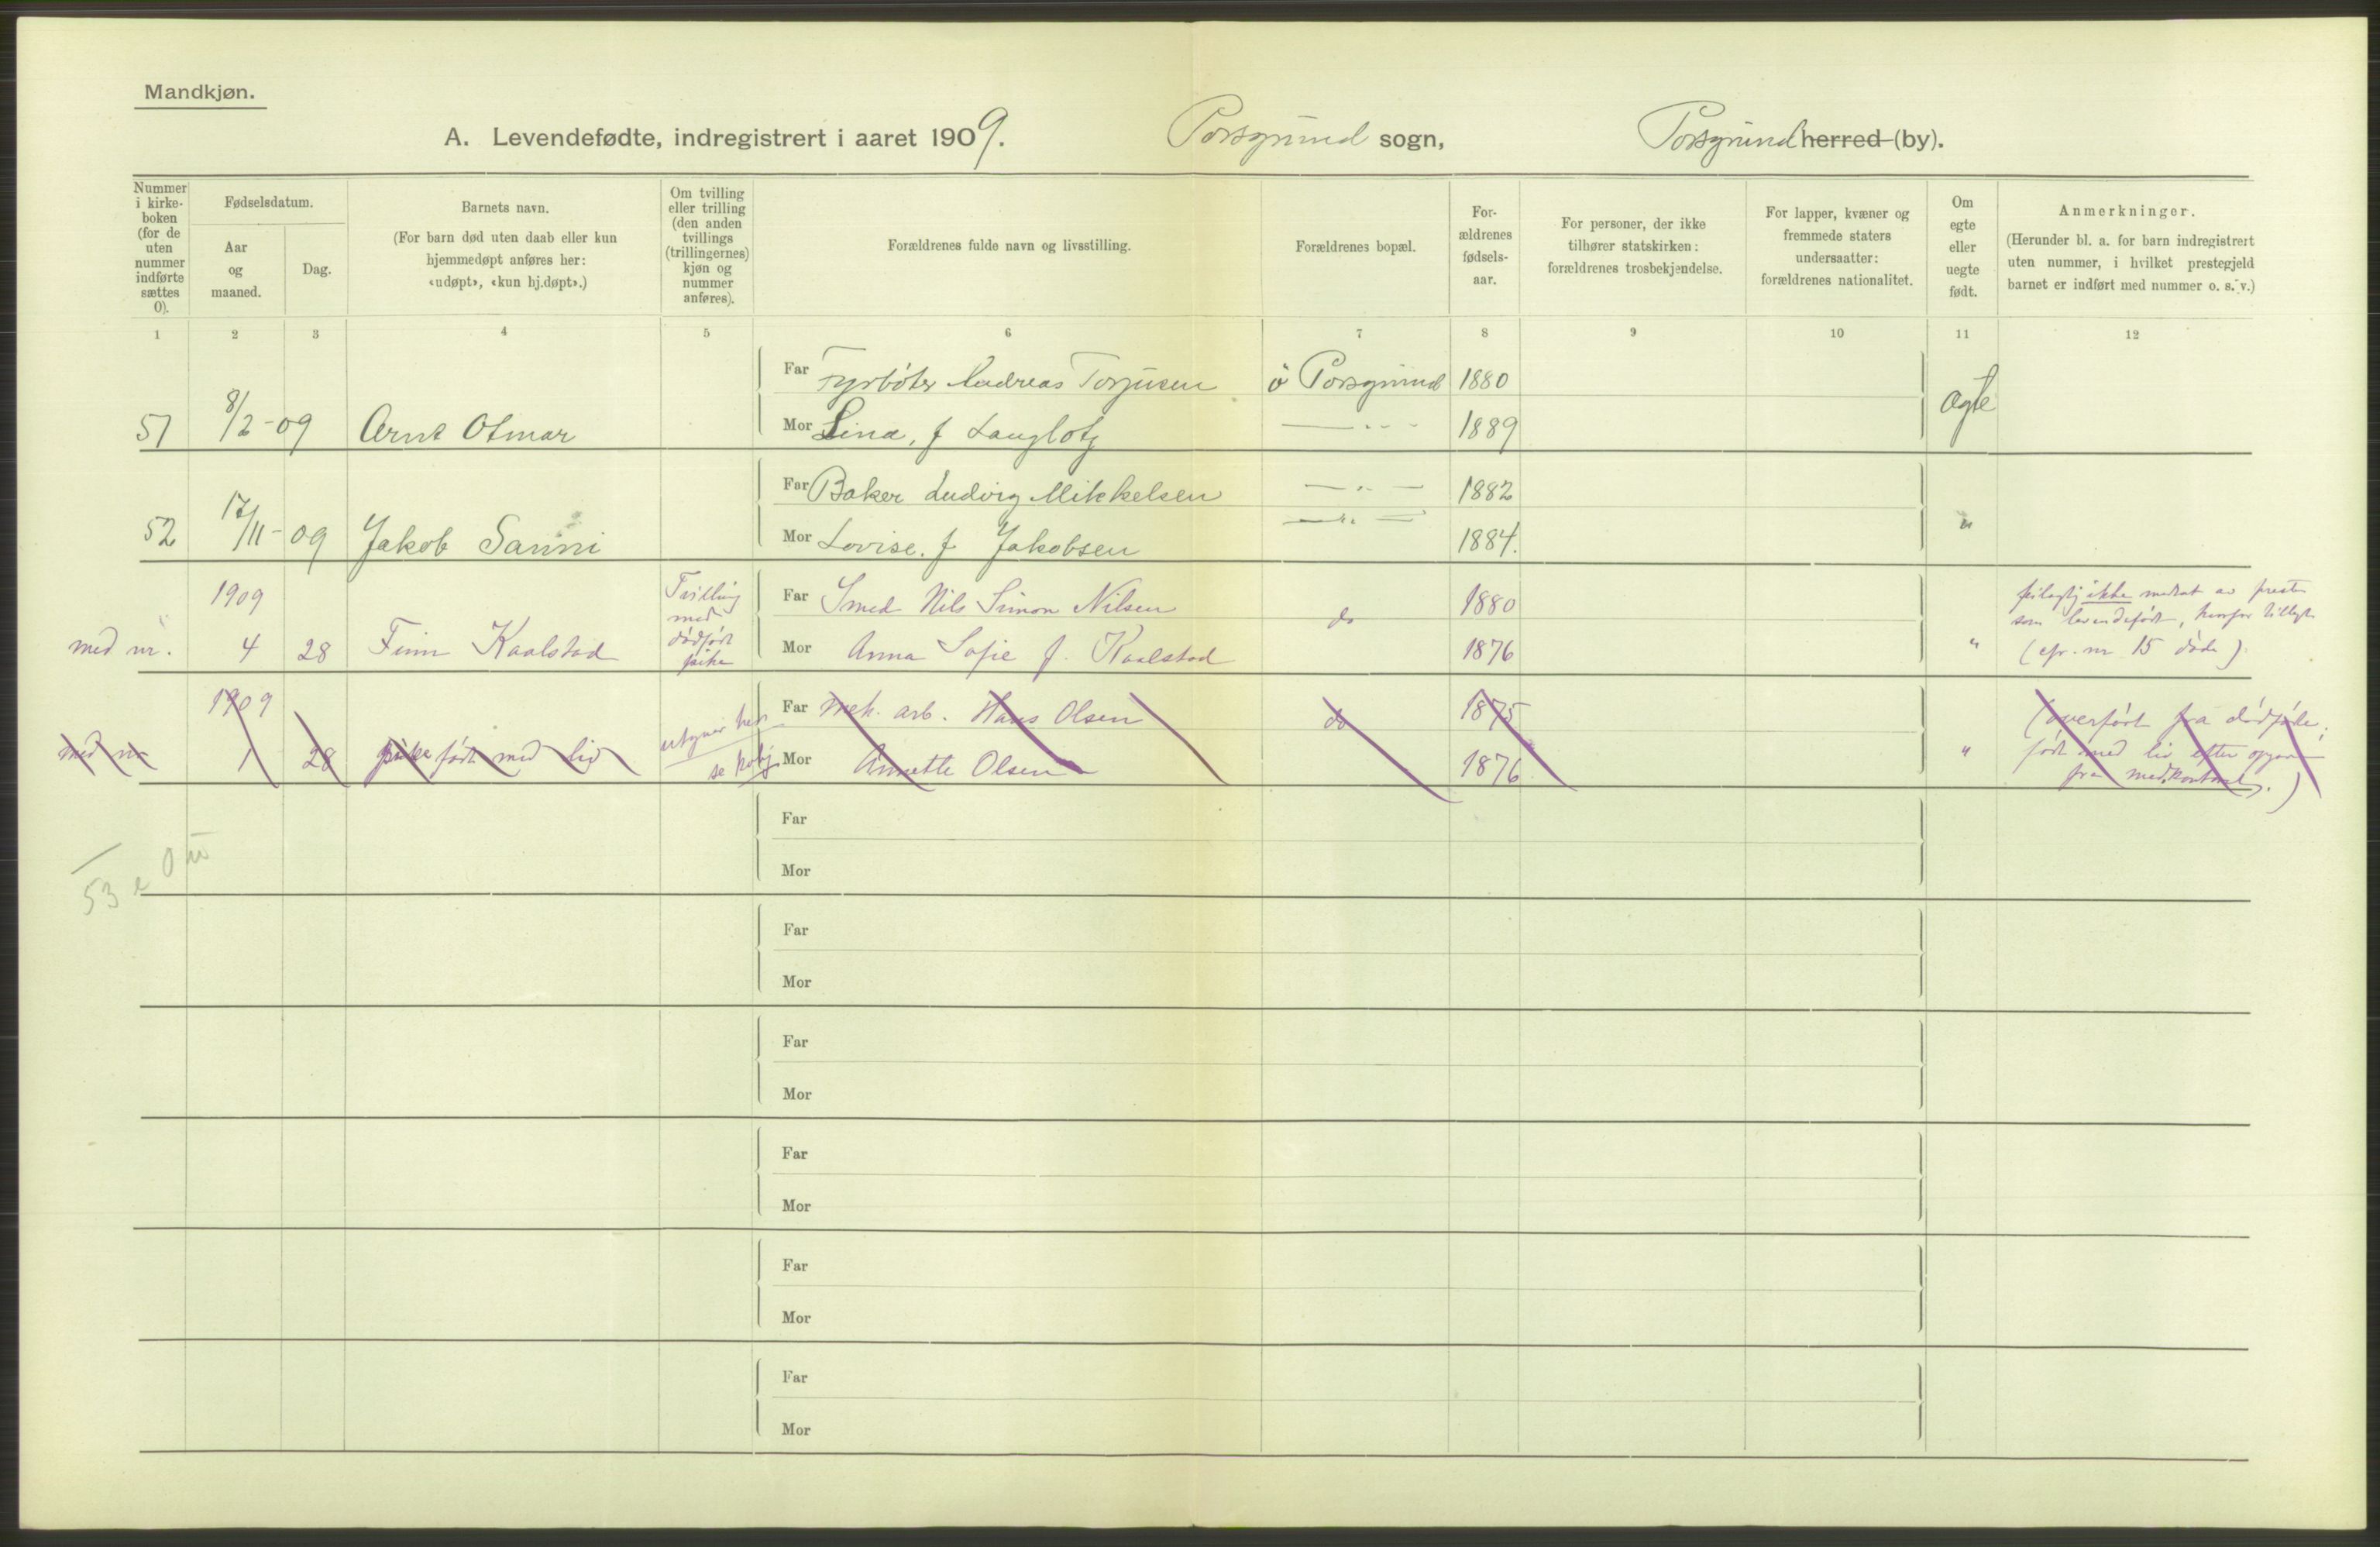 Mandkjøn.
A. Levendefødte, indregistrert i aaret 1909. Porsgrund sogn, Porsgrund herred (by).
Nummer i kirke-boken (for de uten nummer indførte sættes 0).
Fødselsdatum.
Aar og maaned.
Dag.
Barnets navn.
(For barn død uten daab eller kun hjemmedøpt anføres her: «udøpt», «kun hj.døpt».)
Om tvilling eller trilling (den anden tvillings (trillingernes) kjøn og nummer anføres).
Forældrenes fulde navn og livsstilling.
Forældrenes bopæl.
For-ældrenes fødsels-aar.
For personer, der ikke tilhører statskirken: forældrenes trosbekjendelse.
For lapper, kvæner og fremmede staters undersaatter: forældrenes nationalitet.
Om egte eller uegte født.
Anmerkninger.
(Herunder bl. a. for barn indregistrert uten nummer, i hvilket prestegjeld barnet er indført med nummer o. s. v.)
1 2 3 4 5 6 7 8 9 10 11 12
Far Fyrbøter Andreas Torjusen ö Porsgrund 1880
51 8/2-09 Arnt Otmar Mor Lina, f Langlotz — " — 1889 ægte
Far Baker Ludvig Mikkelsen — " — 1882
52 17/11-09 Jakob Sanni Mor Lovise. f Jakobsen — " — 1884. "
1909 Tvilling med dødfødt pike Far Smed Nils Simon Nilsen do 1880
med nr. 4 28 Finn Kaalstad Mor Anna Sofie f. Kaalstad 1876 "
ikke medtat av presten
som levendefødt, hvorfor
(cfr. nr 15 døde).
1909 utgaar her Far Mek. arb. Hans Olsen do 1875
med nr 1 28 pike født med liv se Mor Annette Olsen 1876 "
(overført fra dødfødte,
født med liv efter opgave
fra med.kontoret.)
53 e 0 u
Far
Mor
Far
Mor
Far
Mor
Far
Mor
Far
Mor
Far
Mor